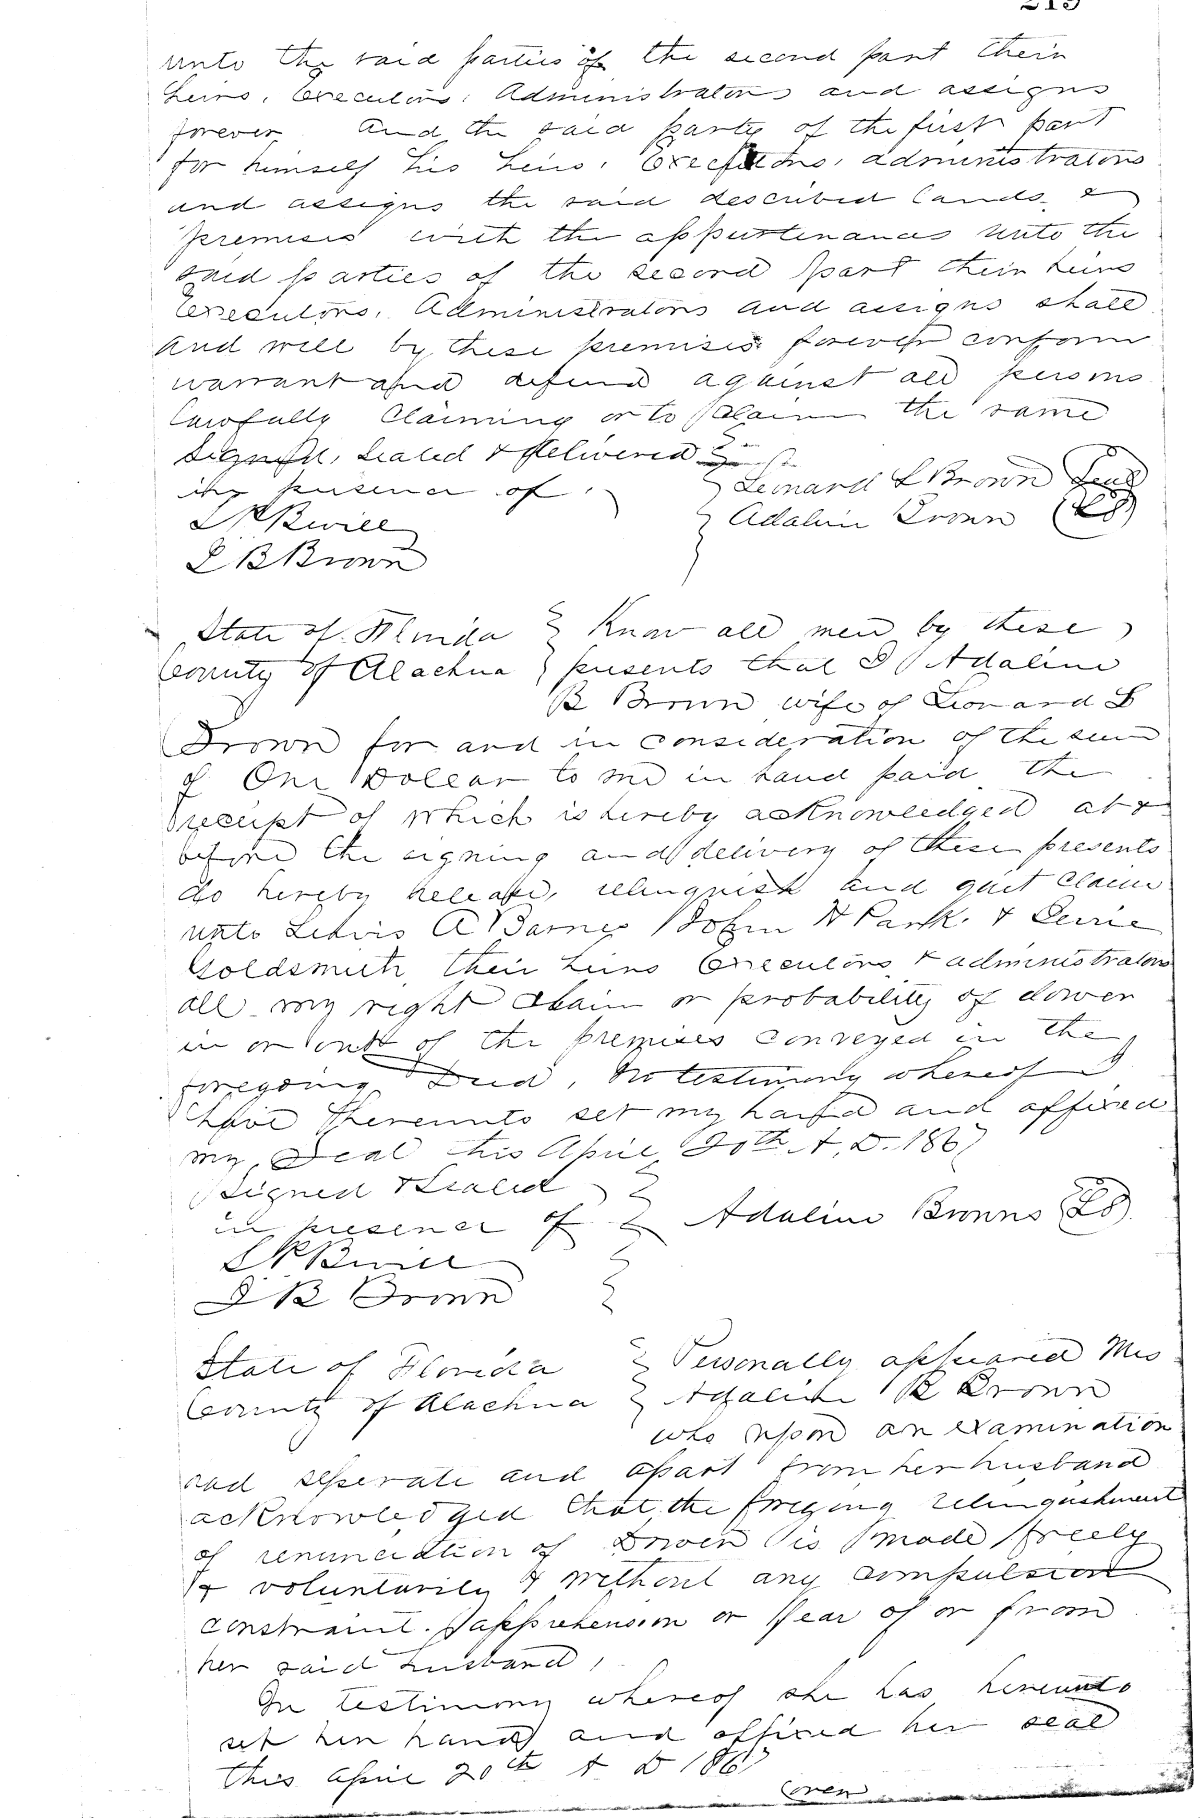 219
unto the said parties of the second part their
heirs, Executors, Administrators and assigns
forever And the said party of the first part
for himself his heirs, Executors, administrators
and assigns the said described lands &
premises with the appurtenances unto the
said parties of the second part their heirs
Executors, Administrators and assigns shall
and will by these premises forever conform
warrant and defend against all persons
lawfully Claiming or to claim the same
Signed, Sealed & delivered
in presence of
Leonard L Brown Seal
Adaline Brown (LS)
B Brown
State of Florida Know all men by these
County of Alachua presents that I Adaline
B Brown wife of Leonard L
Brown for and in consideration of the sum
of One Dollar to me in hand paid the
receipt of which is hereby acknowledged at &
before the signing and delivery of these presents
do hereby release, relinquish and quit claim
unto Lewis A Barnes John H Park &
Goldsmith, their heirs Executors & administrators
all my right claim or probability of dower
in or out of the premises conveyed in the
foregoing Deed, In testimony whereof I
have thereunto set my hand and affixed
my Seal this April 20th A, D. 1867
Signed & Sealed
in presence of Adaline Browns (LS)
B Brown
State of Florida Personally appeared Mrs
County of Alachua Adaline B Brown
who upon an examination
had seperate and apart from her husband
acknowledged that the foregoing relinquishment
of renunciation of Dower is made freely
& voluntarily & without any compulsion
constraint. apprehension or fear of or from
her said husband,
In testimony whereof she has hereunto
set her hand and affixed her seal
this April 20th A D 1867
(over)